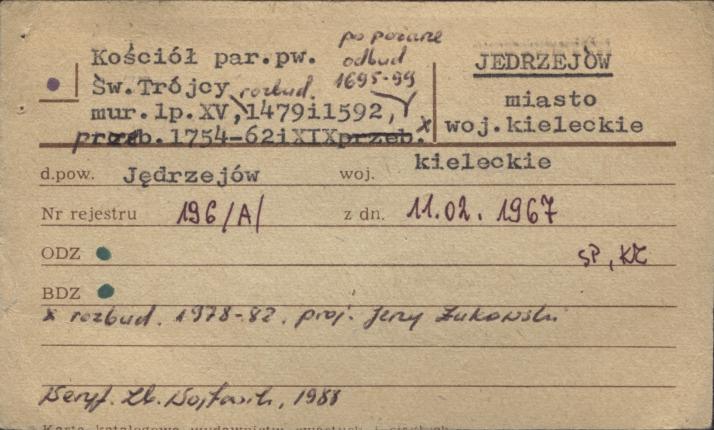 Kościół par.pw.
po pożarze
odbud
1695-99
Św.Trójcy rozbud.
mur.1p.XV,1479i1592,
przeb.1754-62iXIXprzeb.x
JĘDRZEJÓW
miasto
woj.kieleckie
d.pow. Jędrzejów woj. kieleckie
Nr rejestru 196/A/ z dn. 11.02.1967
ODZ SP, KZ
BDZ
x rozbud. 1978-82. proj. Jerzy Żukowski
Weryf. Zb. Wojtasik, 1988
Karta katalogowa